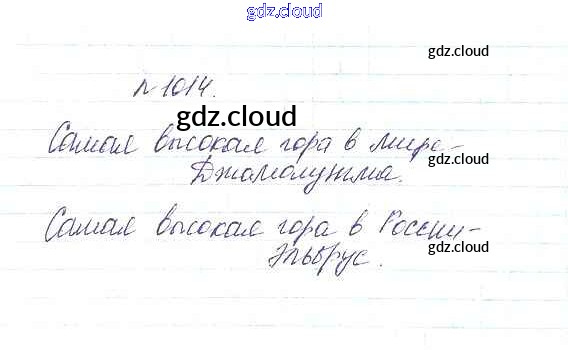 gdz.cloud
gdz.cloud
№ 1014.
gdz.cloud
Самая высокая гора в мире-
gdz.cloud
Джомолунгма.
Самая высокая гора в России-
gdz.cloud
Эльбрус.